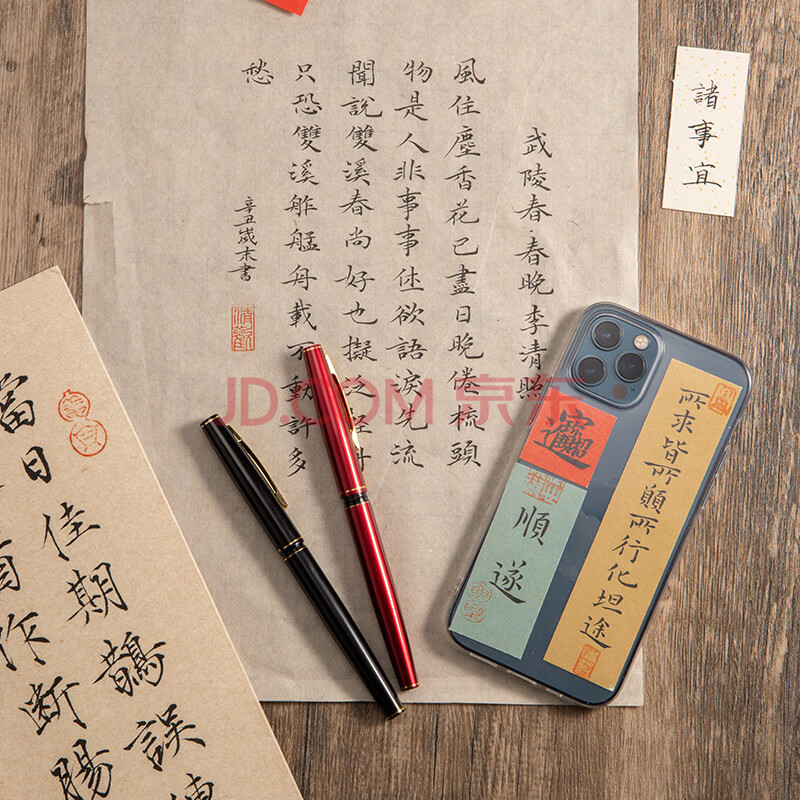 武陵春·春晚李清照
風住塵香花已盡日晚倦梳頭
物是人非事事休欲語淚先流
聞說雙溪春尚好也擬泛輕舟
只恐雙溪舴艋舟載不動許多
愁
辛丑歲末書
諸事宜
所求皆所願所行化坦途
順遂
當日佳期鵲誤
作斷腸
JD.COM 京东